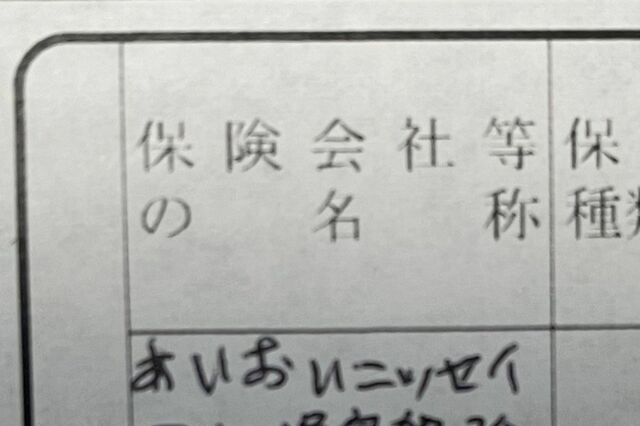 保険会社等
の名称
保
種類
あいおいニッセイ